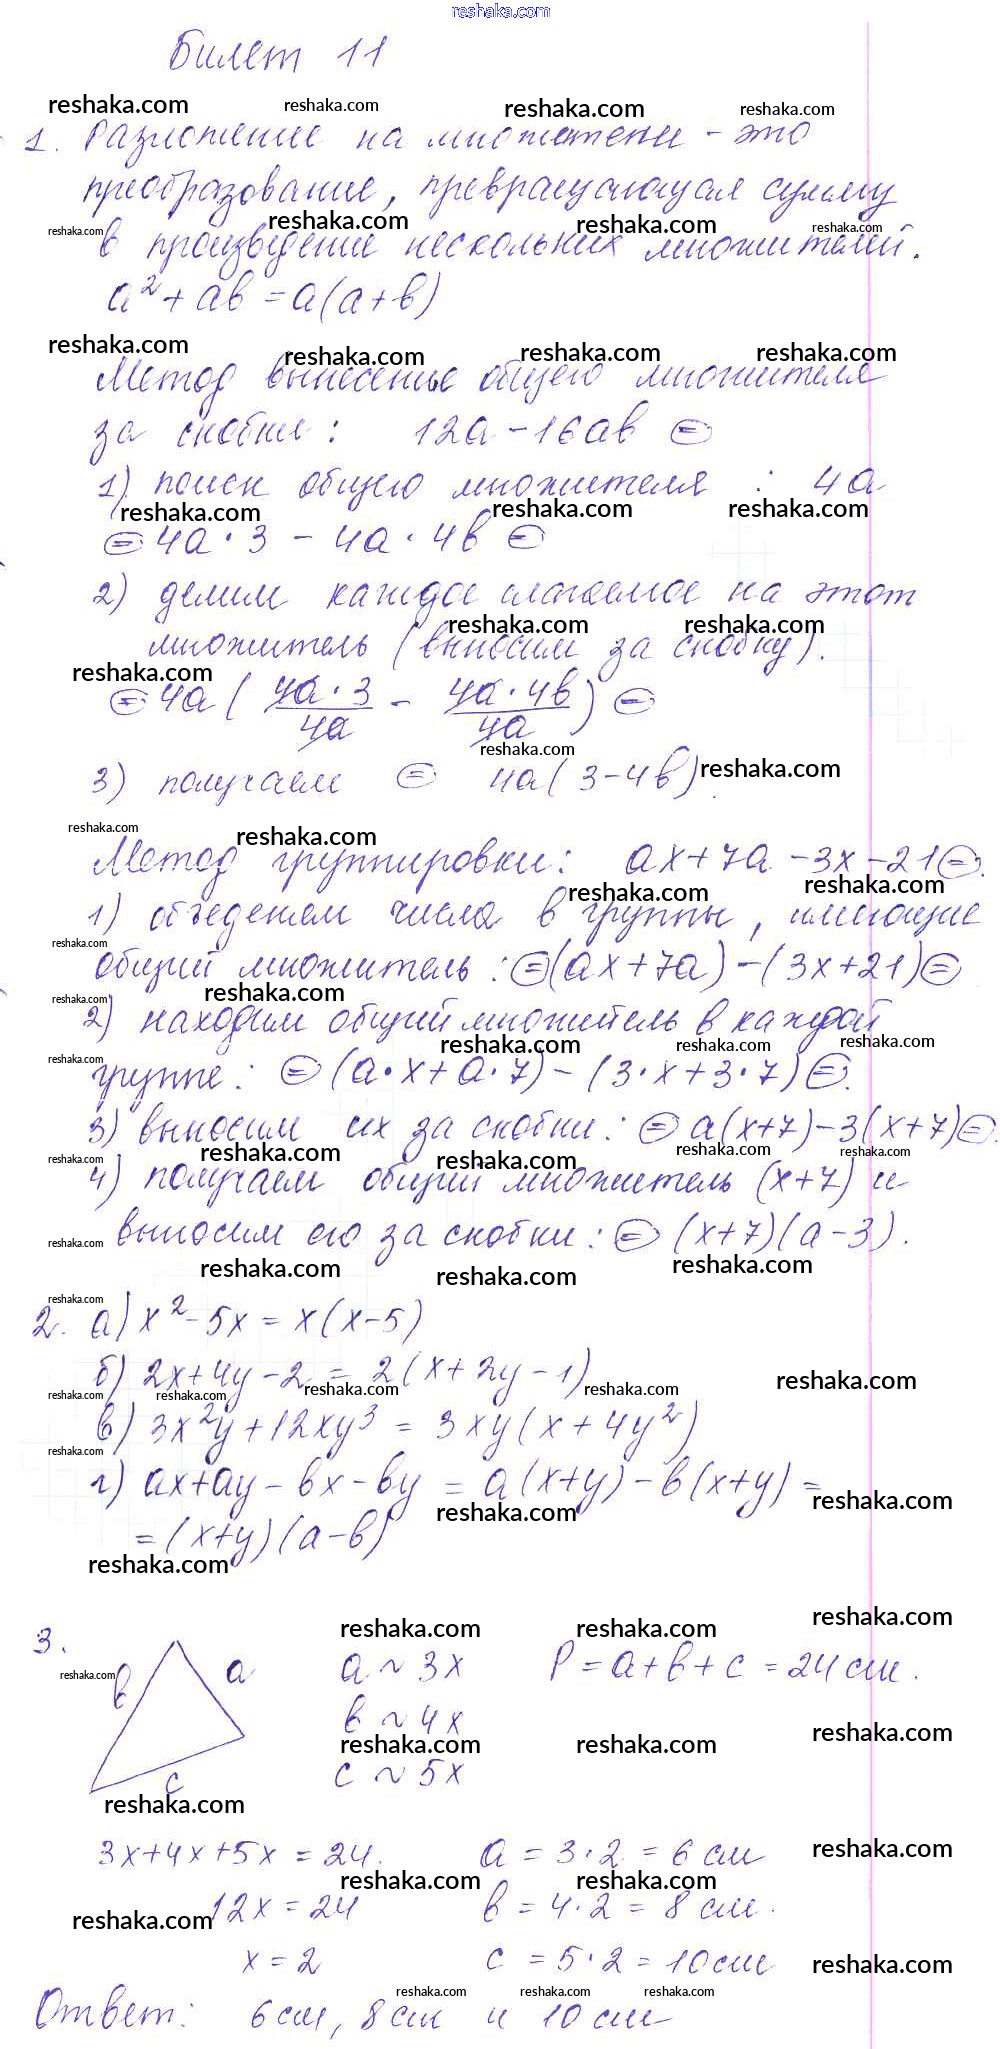 reshaka.com
Билет 11
reshaka.com reshaka.com reshaka.com reshaka.com
1. Разложение на множители - это
преобразование, превращающая сумму
reshaka.com reshaka.com reshaka.com reshaka.com
в произведение нескольких множителей.
a² + ab = a(a+b)
reshaka.com reshaka.com reshaka.com reshaka.com
Метод вынесенье общего множителя
за скобки: 12a - 16ab ⊜
1) поиск общего множителя : 4a
reshaka.com reshaka.com reshaka.com
⊜ 4a · 3 - 4a · 4b ⊜
2) делим каждое слагаемое на этот
reshaka.com reshaka.com
множитель (выносим за скобку).
reshaka.com
⊜ 4a ( 4a · 3 / 4a - 4a · 4b / 4a ) ⊜
reshaka.com
3) получаем ⊜ 4a(3-4b).
reshaka.com
reshaka.com reshaka.com
Метод группировки: ax+7a-3x-21 ⊜.
reshaka.com reshaka.com
1) объеденяем числа в группы, имеющие
reshaka.com
общий множитель: ⊜ (ax+7a)-(3x+21) ⊜
reshaka.com reshaka.com
2) находим общий множитель в каждой
reshaka.com reshaka.com reshaka.com reshaka.com
группе: ⊜ (a·x+a·7)-(3·x+3·7) ⊜.
3) выносим их за скобки: ⊜ a(x+7)-3(x+7) ⊜.
reshaka.com reshaka.com reshaka.com reshaka.com reshaka.com
4) получаем общий множитель (x+7) и
выносим его за скобки: ⊜ (x+7)(a-3).
reshaka.com
reshaka.com reshaka.com reshaka.com
reshaka.com
2. а) x² - 5x = x(x-5)
б) 2x+4y-2 = 2(x+2y-1)
reshaka.com reshaka.com reshaka.com reshaka.com reshaka.com
в) 3x²y+12xy³ = 3xy(x+4y²)
reshaka.com
г) ax+ay-bx-by = a(x+y)-b(x+y) =
reshaka.com reshaka.com
=(x+y)(a-b)
reshaka.com
reshaka.com reshaka.com reshaka.com
3. b a a ~ 3x P = a+b+c = 24 см.
reshaka.com
b ~ 4x
reshaka.com reshaka.com reshaka.com
c c ~ 5x
reshaka.com
3x+4x+5x = 24. a = 3·2 = 6 см
reshaka.com
reshaka.com reshaka.com
12x = 24 b = 4·2 = 8 см.
reshaka.com
x = 2 c = 5·2 = 10 см
reshaka.com
reshaka.com reshaka.com reshaka.com
Ответ: 6 см, 8 см и 10 см